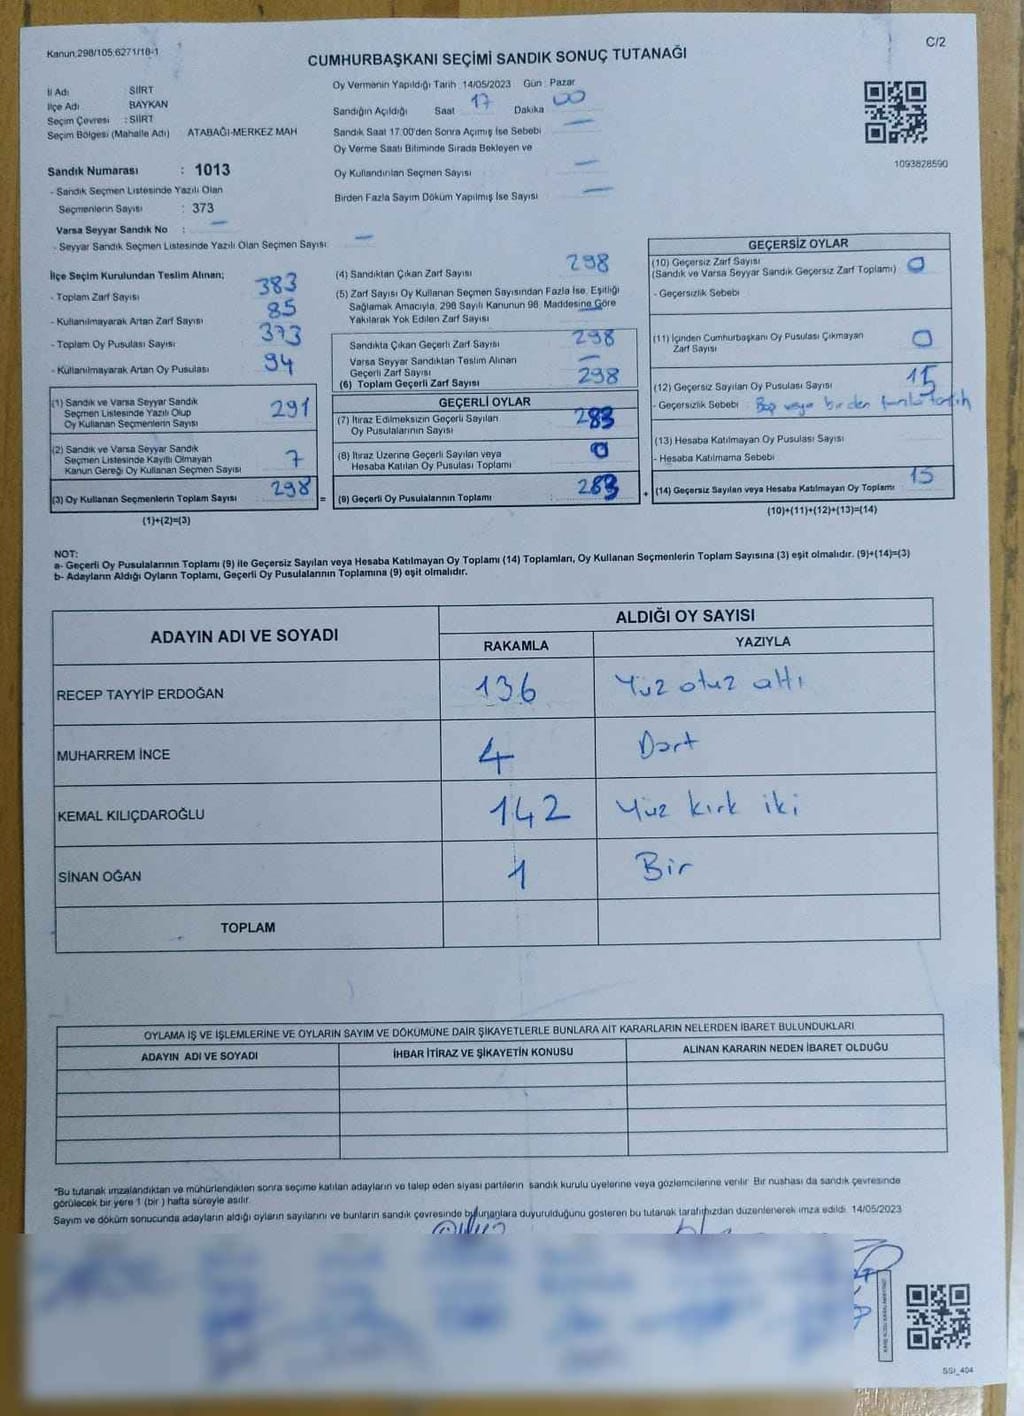 Kanun.298/105 6271/18-1
C/2
CUMHURBAŞKANI SEÇİMİ SANDIK SONUÇ TUTANAĞI
İl Adı SİİRT
İlçe Adı BAYKAN
Seçim Çevresi : SİİRT
Seçim Bölgesi (Mahalle Adı) ATABAĞI-MERKEZ MAH
Oy Vermenin Yapıldığı Tarih 14/05/2023 Gün Pazar
Sandığın Açıldığı Saat 17 Dakika 00
Sandık Saat 17:00'den Sonra Açımış İse Sebebi —
Oy Verme Saati Bitiminde Sırada Bekleyen ve
Oy Kullandırılan Seçmen Sayısı —
Birden Fazla Sayım Döküm Yapılmış İse Sayısı —
1093828590
Sandık Numarası : 1013
- Sandık Seçmen Listesinde Yazılı Olan
Seçmenlerin Sayısı : 373
Varsa Seyyar Sandık No : —
- Seyyar Sandık Seçmen Listesinde Yazılı Olan Seçmen Sayısı —
İlçe Seçim Kurulundan Teslim Alınan;
- Toplam Zarf Sayısı 383
- Kullanılmayarak Artan Zarf Sayısı 85
- Toplam Oy Pusulası Sayısı 373
- Kullanılmayarak Artan Oy Pusulası 94
(1) Sandık ve Varsa Seyyar Sandık
Seçmen Listesinde Yazılı Olup
Oy Kullanan Seçmenlerin Sayısı 291
(2) Sandık ve Varsa Seyyar Sandık
Seçmen Listesinde Kayıtlı Olmayan
Kanun Gereği Oy Kullanan Seçmen Sayısı 7
(3) Oy Kullanan Seçmenlerin Toplam Sayısı 298 =
(1)+(2)=(3)
(4) Sandıktan Çıkan Zarf Sayısı 298
(5) Zarf Sayısı Oy Kullanan Seçmen Sayısından Fazla İse, Eşitliği
Sağlamak Amacıyla, 298 Sayılı Kanunun 98. Maddesine Göre
Yakılarak Yok Edilen Zarf Sayısı —
Sandıkta Çıkan Geçerli Zarf Sayısı 298
Varsa Seyyar Sandıktan Teslim Alınan
Geçerli Zarf Sayısı —
(6) Toplam Geçerli Zarf Sayısı 298
GEÇERLİ OYLAR
(7) İtiraz Edilmeksizin Geçerli Sayılan
Oy Pusulalarının Sayısı 283
(8) İtiraz Üzerine Geçerli Sayılan veya
Hesaba Katılan Oy Pusulası Toplamı 0
(9) Geçerli Oy Pusulalarının Toplamı 283 +
GEÇERSİZ OYLAR
(10) Geçersiz Zarf Sayısı 0
(Sandık ve Varsa Seyyar Sandık Geçersiz Zarf Toplamı)
- Geçersizlik Sebebi
(11) İçinden Cumhurbaşkanı Oy Pusulası Çıkmayan
Zarf Sayısı 0
(12) Geçersiz Sayılan Oy Pusulası Sayısı 15
- Geçersizlik Sebebi : Boş veya birden fazla tercih
(13) Hesaba Katılmayan Oy Pusulası Sayısı
- Hesaba Katılmama Sebebi
(14) Geçersiz Sayılan veya Hesaba Katılmayan Oy Toplamı 15
(10)+(11)+(12)+(13)=(14)
NOT:
a- Geçerli Oy Pusulalarının Toplamı (9) ile Geçersiz Sayılan veya Hesaba Katılmayan Oy Toplamı (14) Toplamları, Oy Kullanan Seçmenlerin Toplam Sayısına (3) eşit olmalıdır. (9)+(14)=(3)
b- Adayların Aldığı Oyların Toplamı, Geçerli Oy Pusulalarının Toplamına (9) eşit olmalıdır.
ADAYIN ADI VE SOYADI
ALDIĞI OY SAYISI
RAKAMLA YAZIYLA
RECEP TAYYİP ERDOĞAN 136 Yüz otuz altı
MUHARREM İNCE 4 Dört
KEMAL KILIÇDAROĞLU 142 Yüz kırk iki
SİNAN OĞAN 1 Bir
TOPLAM
OYLAMA İŞ VE İŞLEMLERİNE VE OYLARIN SAYIM VE DÖKÜMÜNE DAİR ŞİKAYETLERLE BUNLARA AİT KARARLARIN NELERDEN İBARET BULUNDUKLARI
ADAYIN ADI VE SOYADI İHBAR İTİRAZ VE ŞİKAYETİN KONUSU ALINAN KARARIN NEDEN İBARET OLDUĞU
*Bu tutanak imzalandıktan ve mühürlendikten sonra seçime katılan adayların ve talep eden siyasi partilerin sandık kurulu üyelerine veya gözlemcilerine verilir. Bir nushası da sandık çevresinde
görülecek bir yere 1 (bir ) hafta süreyle asılır.
Sayım ve döküm sonucunda adayların aldığı oyların sayılarını ve bunların sandık çevresinde bulunanlara duyurulduğunu gösteren bu tutanak tarafımızdan düzenlenerek imza edildi. 14/05/2023
SSI_404